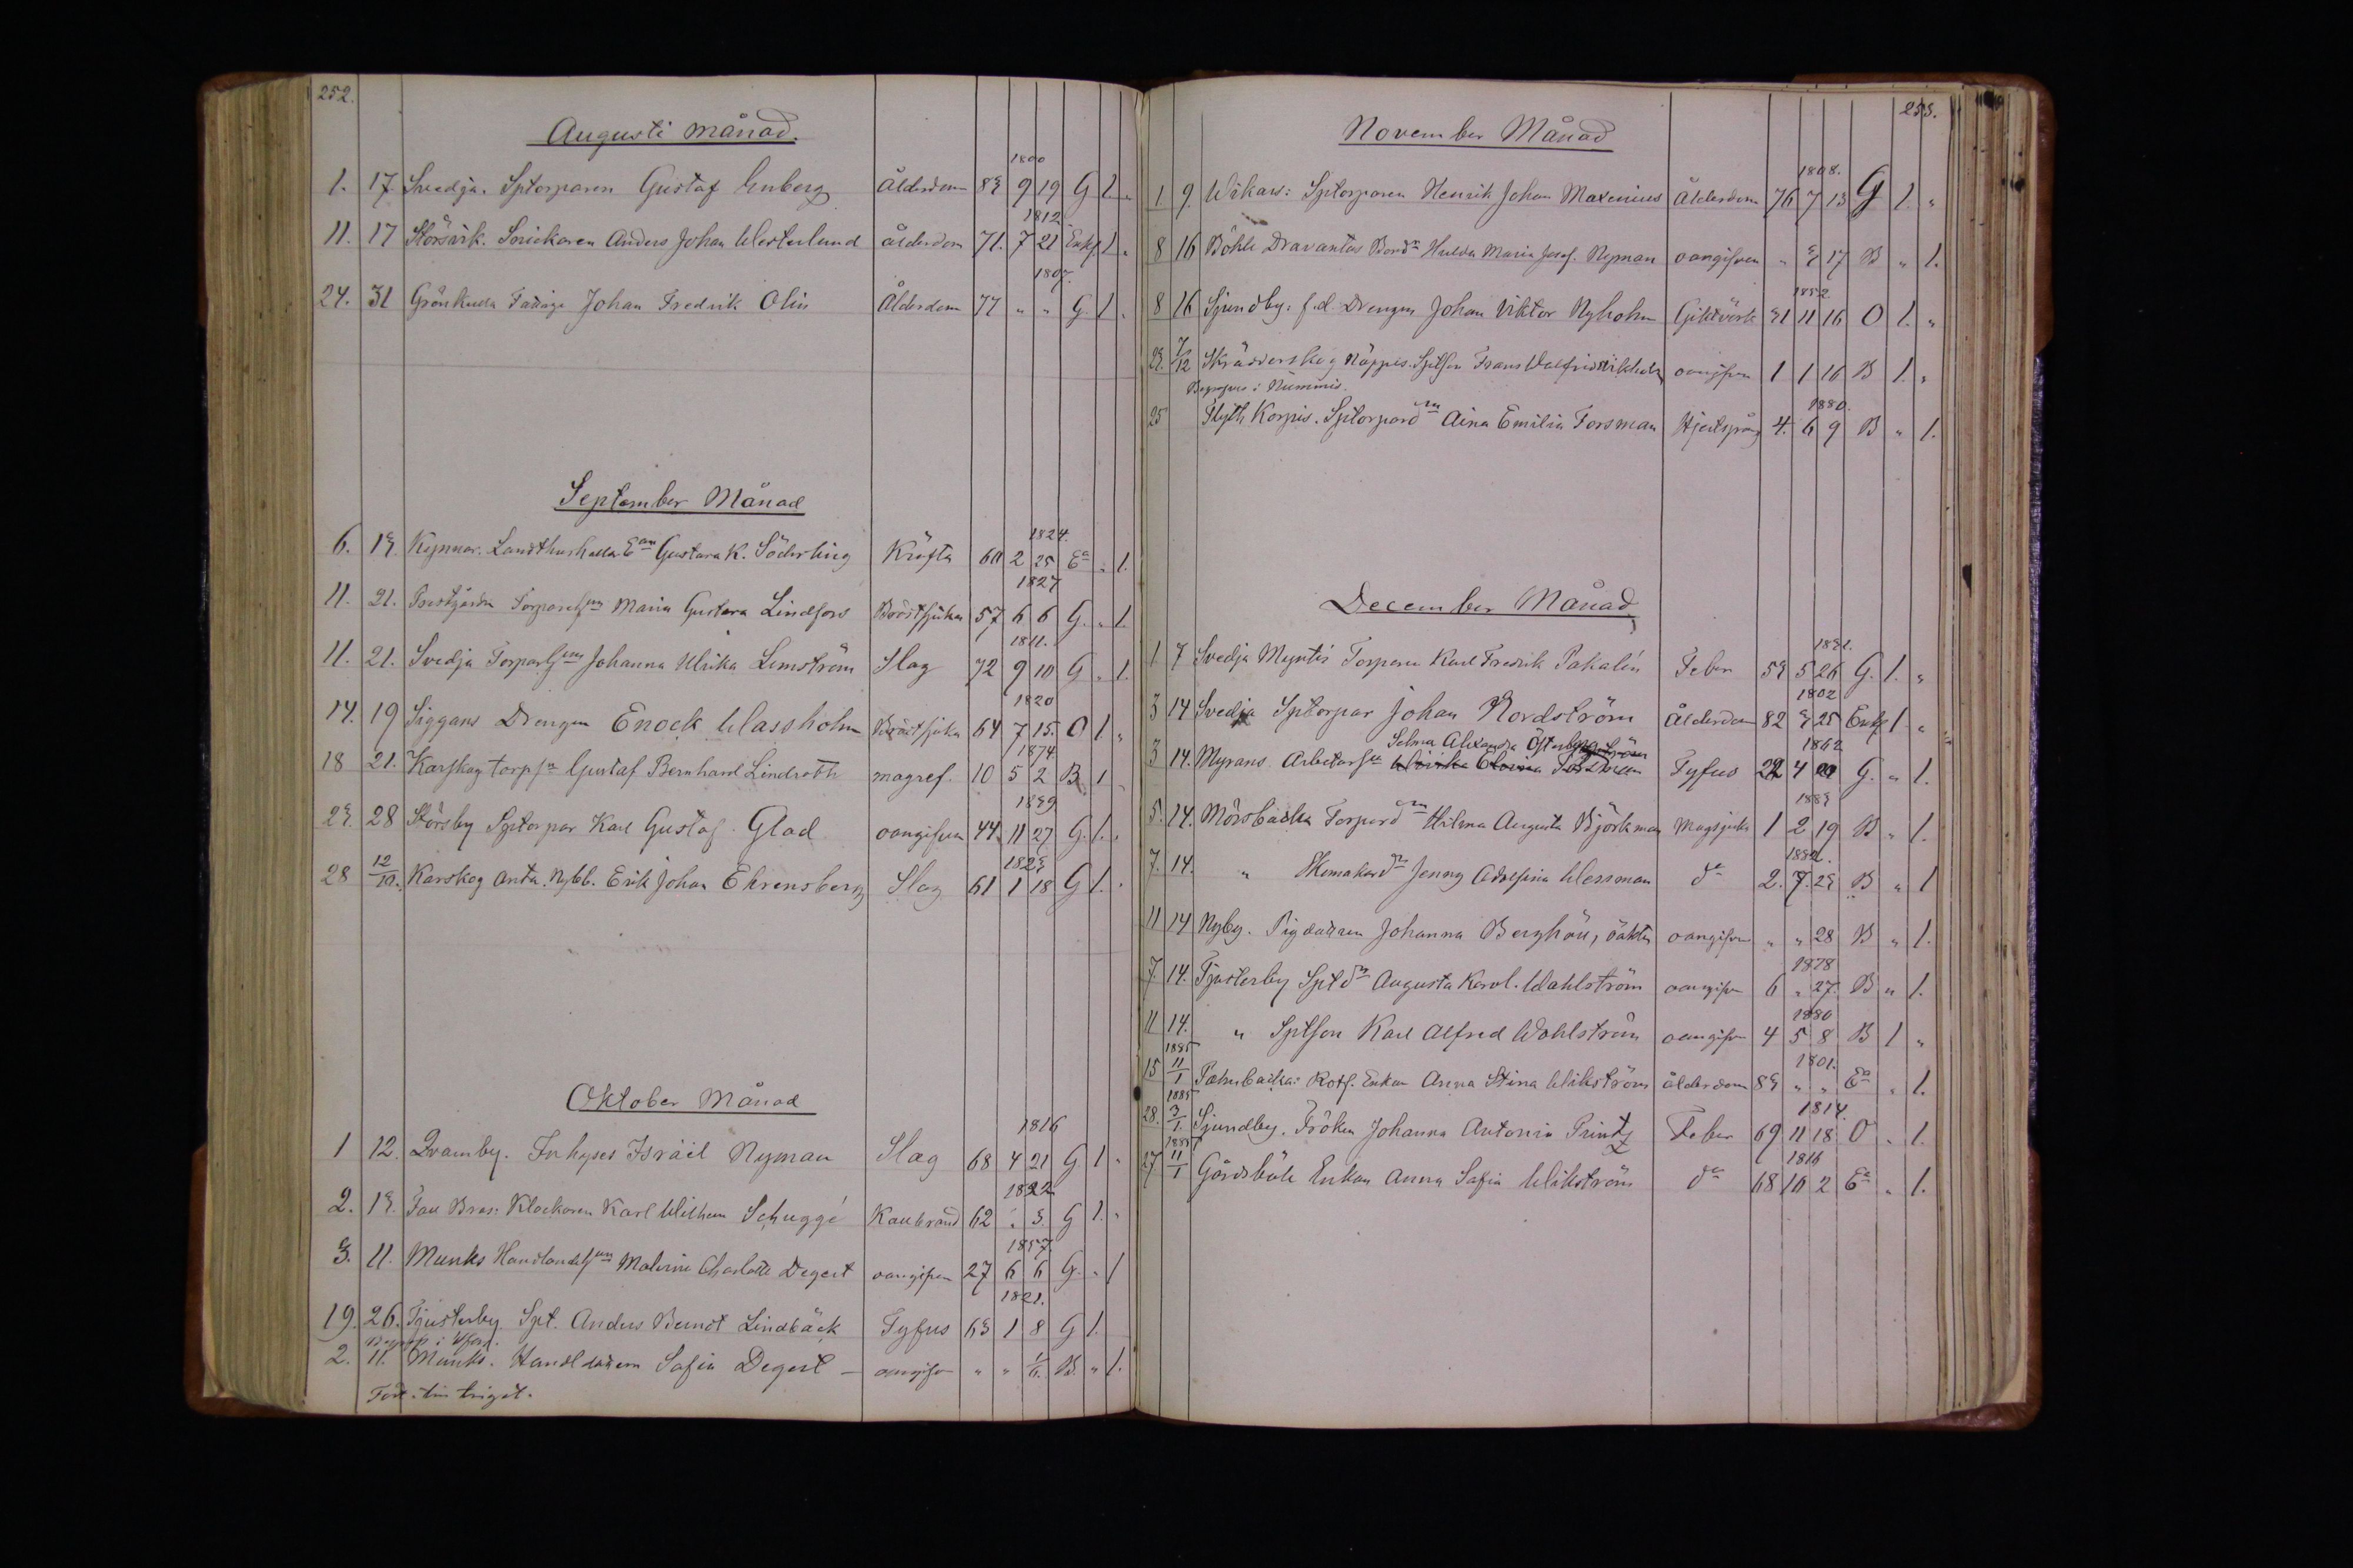 252.
Augusti månad.
1800
1. 17. Svedja. Sptorparen Gustaf Enberg Ålderdom 83 9 19 G 1. "
1812
11. 17 Störsvik. Snickaren Anders Johan Westerlund ålderdom 71. 7 21 Enkl. 1 "
1807.
24. 31 Grönkulla Johan Fredrik Olin Ålderdom 77 " " G. 1 "
September Månad
1824.
6. 13. Kypmar. Gustava K. Söderling Kräfta 60 2 25 Ea " 1.
1827
11. 21. Prestgårdn Maria Gustava Lindfors Bröstsjukan 57 6 6 G. " 1.
1811.
11. 21. Svedja Johanna Ulrika Lemström Slag 72 9 10 G " 1.
1820
14. 19 Siggans Drengen Enock Classholm Bröstsjuka 64 7 15. O 1 "
1874
18 21. Karskog torpsn Gustaf Bernhard Lindroth magref. 10 5 2 B 1 "
1839
23. 28 Störsby Sptorpar Karl Gustaf Glad oangifven 44. 11 27 G. 1. "
1823
28 12/10. Karskog Anta. Nybb. Erik Johan Ehrensberg Slag 61 1 18 G 1. "
Oktober Månad
1816
1 12. Qvarnby. Inhyses Israël Nyman Slag 68 4 21 G 1 "
1822
2. 13. Klockaren Karl Wilhem Schuggé Kallbrand 62 " 3. G 1. "
1857.
3. 11. Munks Malvina Charlotta Degert oangifven 27 6 6 G. " 1
1821.
19. 26. Tjusterby Spt. Anders Berndt Lindbäck Tyfus 63 1 8 G 1.
2. 11. Munks. Safia Degert — oangifven " " B. " 1.
253.
November Månad
1808.
1 9. Wikars: Sptorparen Henrik Johan Maxenius Ålderdom 76 7 13 G 1. "
8 16 Böhle Dravantas Hulda Maria Josef. Nyman oangifven " 3 17 B " 1.
1852
8 16 Sjundby: f.d. Drengen Johan Viktor Nyholm Giktvärk 31 11 16 O 1. "
23. 7/12 Skräddarskog Näppis. Sptson Frans Walfrid oangifven 1 1 16 B 1. "
Begrafven i Nummis.
1880.
25 Flyth Korpis. Sptorpard Aina Emilia Forsman Hjertsprång 4. 6 9 B " 1.
December Månad
1831.
1 7 Svedja Myntis Torparen Karl Fredrik Pakalén Feber 53 5 26 G. 1. "
1802
3 14 Svedja Sptorpar Johan Nordström Ålderdom 82 3 25 Enkl 1 "
Selma Alexandra Österberg 1862
3 14. Myrans Tyfus 22 4 G. " 1.
1883
5. 14. Mörsbacka Torpard Hilma Augusta Björkman Magsjuka 1 2 19 B " 1.
1882.
7. 14. " Jenny Adolfina Wessman do 2. 7. 23 B " 1
11 14 Nyby. Pigdottren Johanna Berghäll, oäkta oangifven " " 28 B " 1.
1878
7. 14. Tjusterby Sptd Augusta Karol. Wahlström oangifven 6 " 27. B " 1.
1880
11 14. " Sptson Karl Alfred Wahlström oangifven 4 5 8 B 1 "
1885 1801.
15 11/1 Palmbacka: Rotf. Enkan Anna Stina Wikström ålderdom 83 " " Ea " 1.
1885 1814.
28. 3/1. Sjundby. Fröken Johanna Antonia Printz Feber 69 11 18 O " 1.
1885 1816
27 11/1 Gårdsböle Enkan Anna Safia Wikström do 68 10 2 Ea " 1.